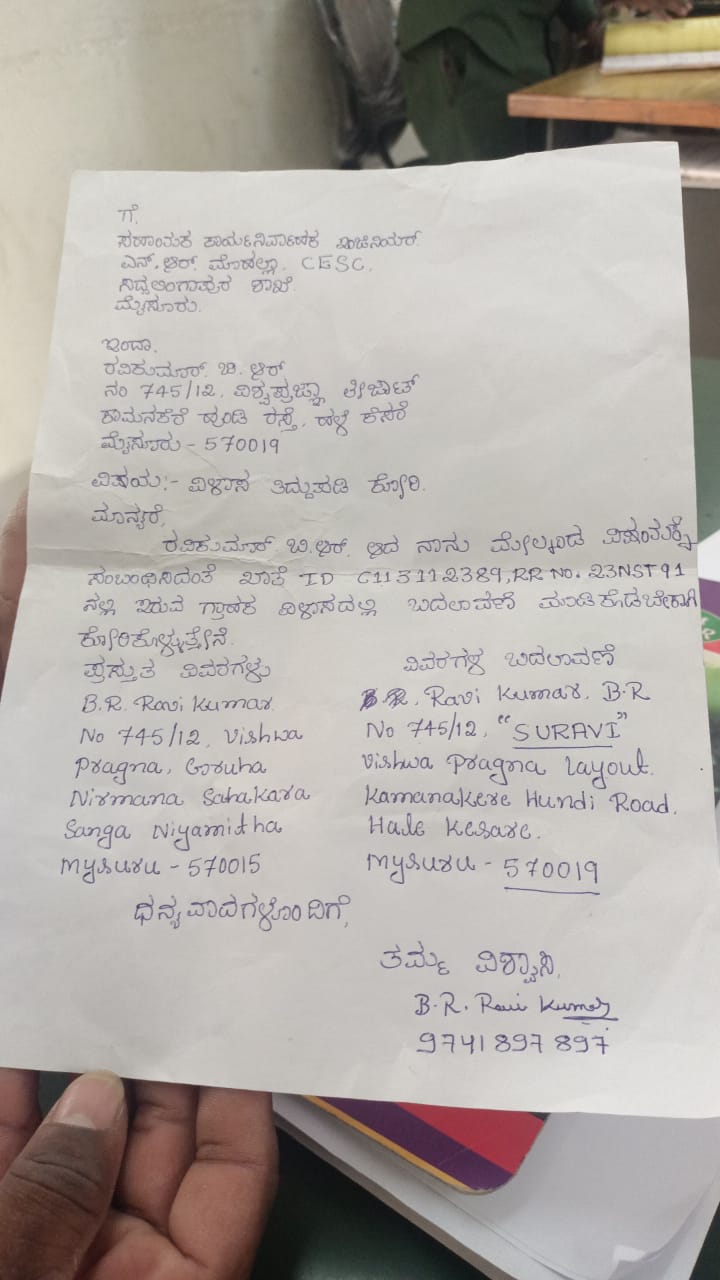 ಗೆ,
ಸಹಾಯಕ ಕಾರ್ಯನಿರ್ವಾಹಕ ಇಂಜಿನಿಯರ್.
ಎನ್.ಆರ್. ಮೊಹಲ್ಲಾ, CESC,
ಸಿದ್ದಲಿಂಗಾಪುರ ಶಾಖೆ.
ಮೈಸೂರು.
ಇಂದಾ,
ರವಿಕುಮಾರ್. ಬಿ. ಆರ್
ನಂ 745/12, ವಿಶ್ವಪ್ರಜ್ಞಾ ಲೇಔಟ್
ಕಾಮನಕೆರೆ ಹುಂಡಿ ರಸ್ತೆ, ಹಳೆ ಕೆಸರೆ
ಮೈಸೂರು - 570019
ವಿಷಯ:- ವಿಳಾಸ ತಿದ್ದುಪಡಿ ಕೋರಿ.
ಮಾನ್ಯರೆ,
ರವಿಕುಮಾರ್. ಬಿ.ಆರ್. ಆದ ನಾನು ಮೇಲ್ಕಂಡ ವಿಷಯಕ್ಕೆ
ಸಂಬಂಧಿಸಿದಂತೆ ಖಾತೆ ID C113112389, RR No. 23NST91
ನಲ್ಲಿ ಇರುವ ಗ್ರಾಹಕ ವಿಳಾಸದಲ್ಲಿ ಬದಲಾವಣೆ ಮಾಡಿಕೊಡಬೇಕಾಗಿ
ಕೋರಿಕೊಳ್ಳುತ್ತೇನೆ.
ಪ್ರಸ್ತುತ ವಿವರಗಳು
B.R. Ravi Kumar.
No 745/12, Vishwa
Pragna, Gruha
Nirmana Sahakara
Sanga Niyamitha
Mysuru - 570015
ವಿವರಗಳ ಬದಲಾವಣೆ
Ravi Kumar. B.R
No 745/12, "SURAVI"
Vishwa Pragna Layout.
Kamanakere Hundi Road.
Hale Kesare.
Mysuru - 570019
ಧನ್ಯವಾದಗಳೊಂದಿಗೆ,
ತಮ್ಮ ವಿಶ್ವಾಸಿ,
B.R. Ravi Kumar
9741897897